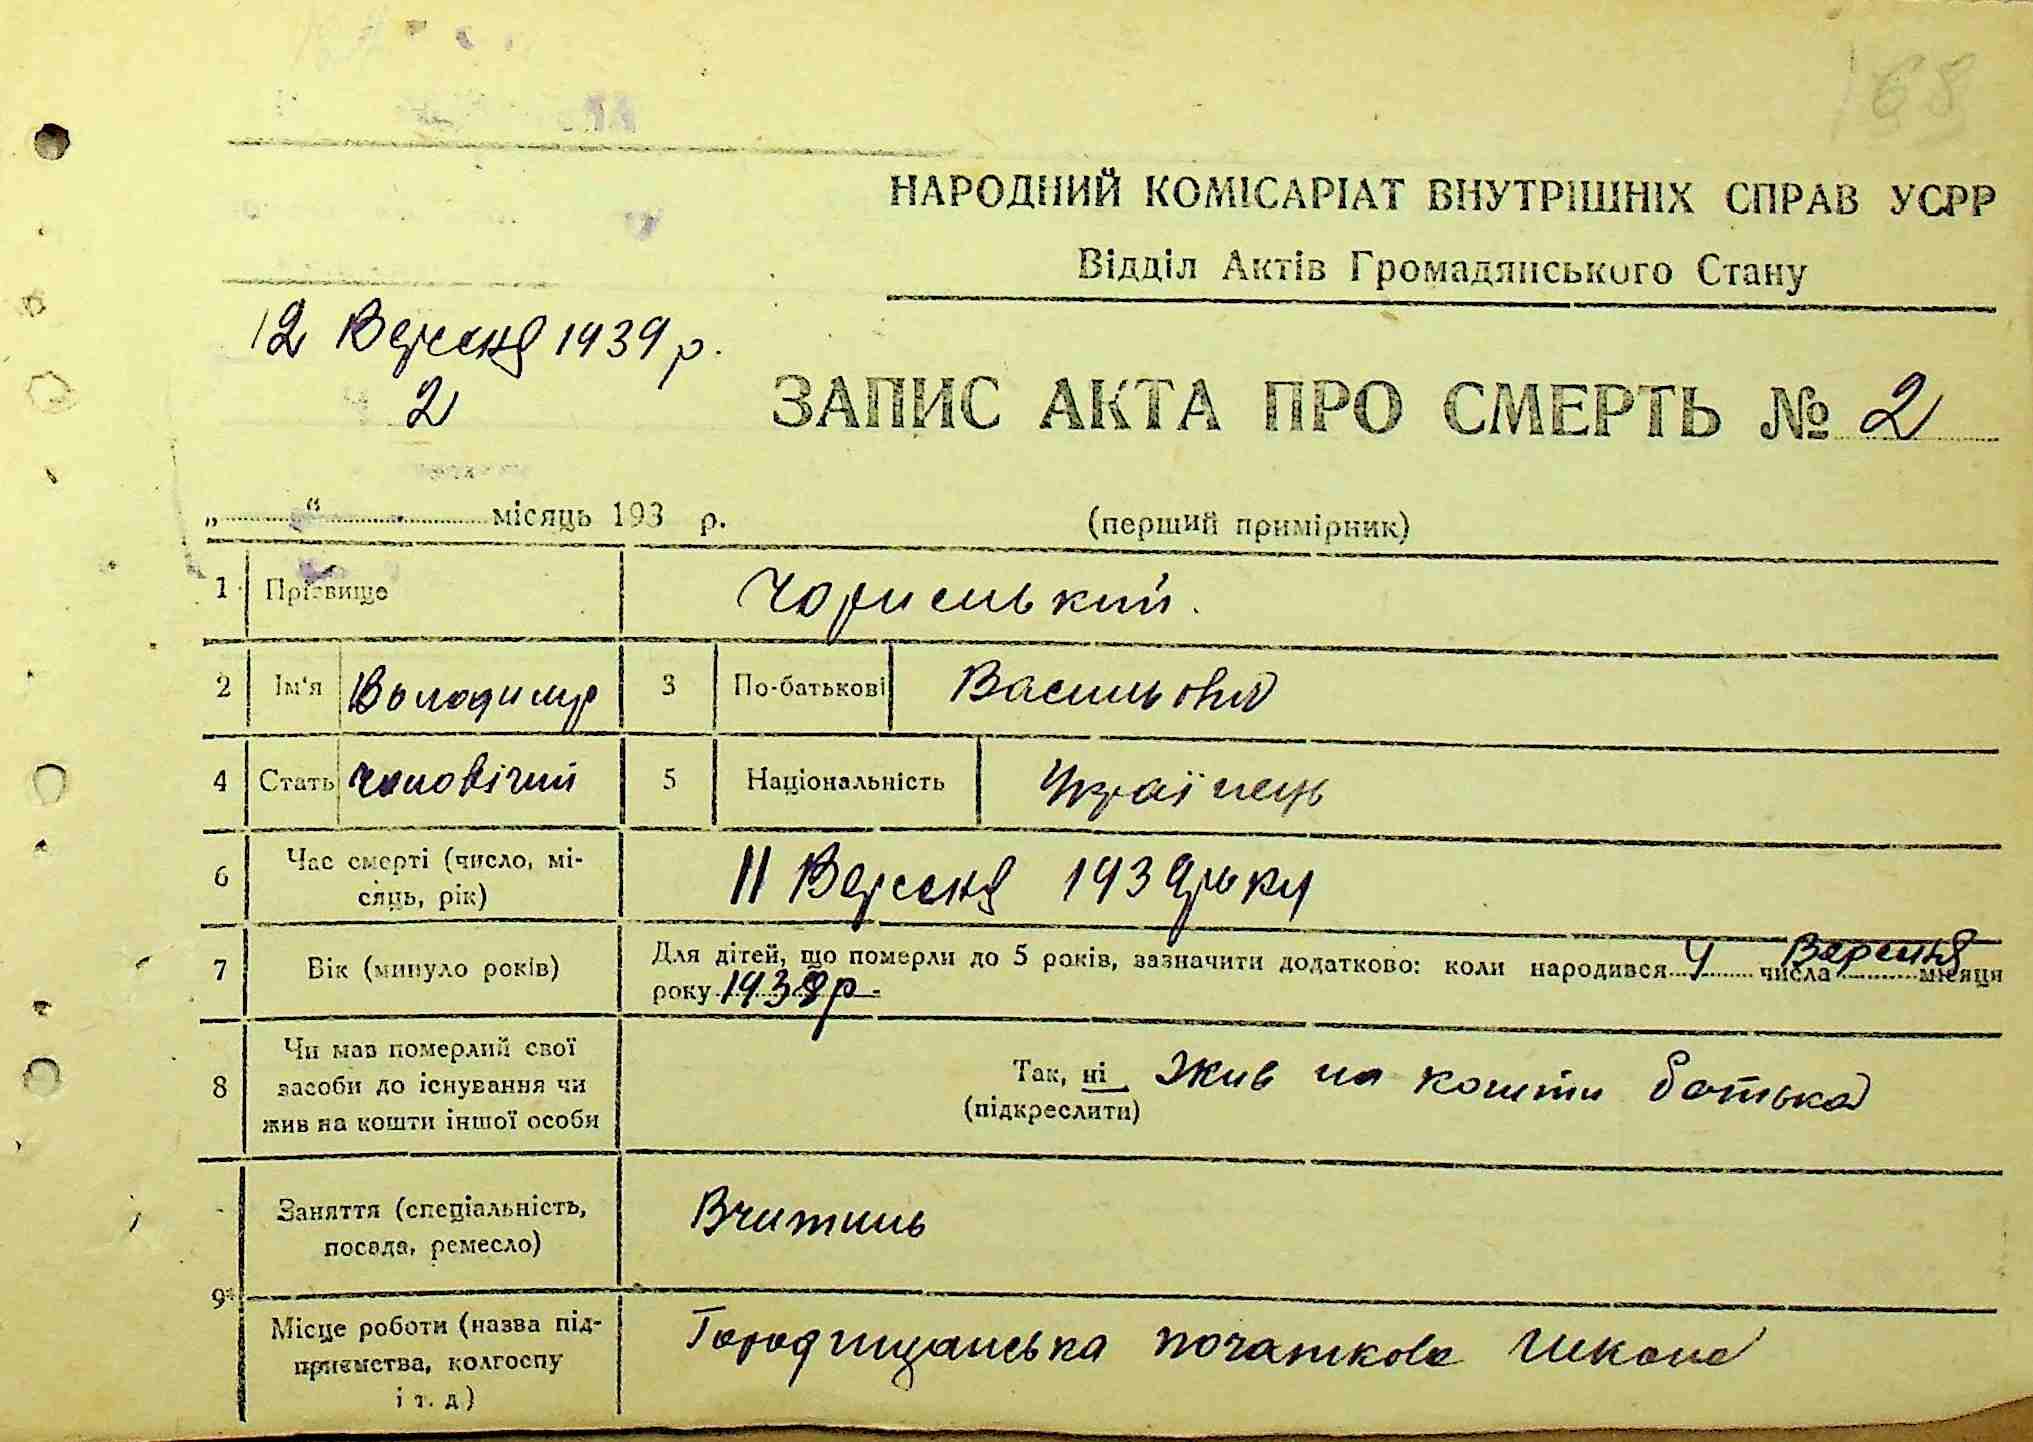 168
НАРОДНИЙ КОМІСАРІАТ ВНУТРІШНІХ СПРАВ УСРР
Відділ Актів Громадянського Стану
12 Вересня 1939 р.
2
ЗАПИС АКТА ПРО СМЕРТЬ № 2
„ “ місяць 193 р. (перший примірник)
1 Прізвище Чорненький.
2 Ім'я Володимир 3 По-батькові Васильович
4 Стать чоловічий 5 Національність Українець
6 Час смерті (число, мі-
сяць, рік) 11 Вересня 1939 року
7 Вік (минуло років) Для дітей, що померли до 5 років, зазначити додатково: коли народився 4 числа Вересня місяця
року 1939 р.
8 Чи мав померлий свої
засоби до існування чи
жив на кошти іншої особи
Так, ні Жив на кошти батька
(підкреслити)
Заняття (спеціальність,
посада, ремесло) Вчитель
9
Місце роботи (назва під-
приємства, колгоспу
і т. д.) Городищанська початкова школа